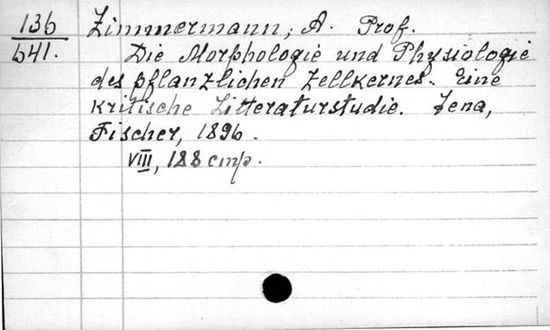 136 Zimmermann, A. Prof.
641. Die Morphologie und Physiologie
des pflanzlichen Zellkernes. Eine
kritische Litteraturstudie. Jena,
Fischer, 1896.
VIII, 188 стр.